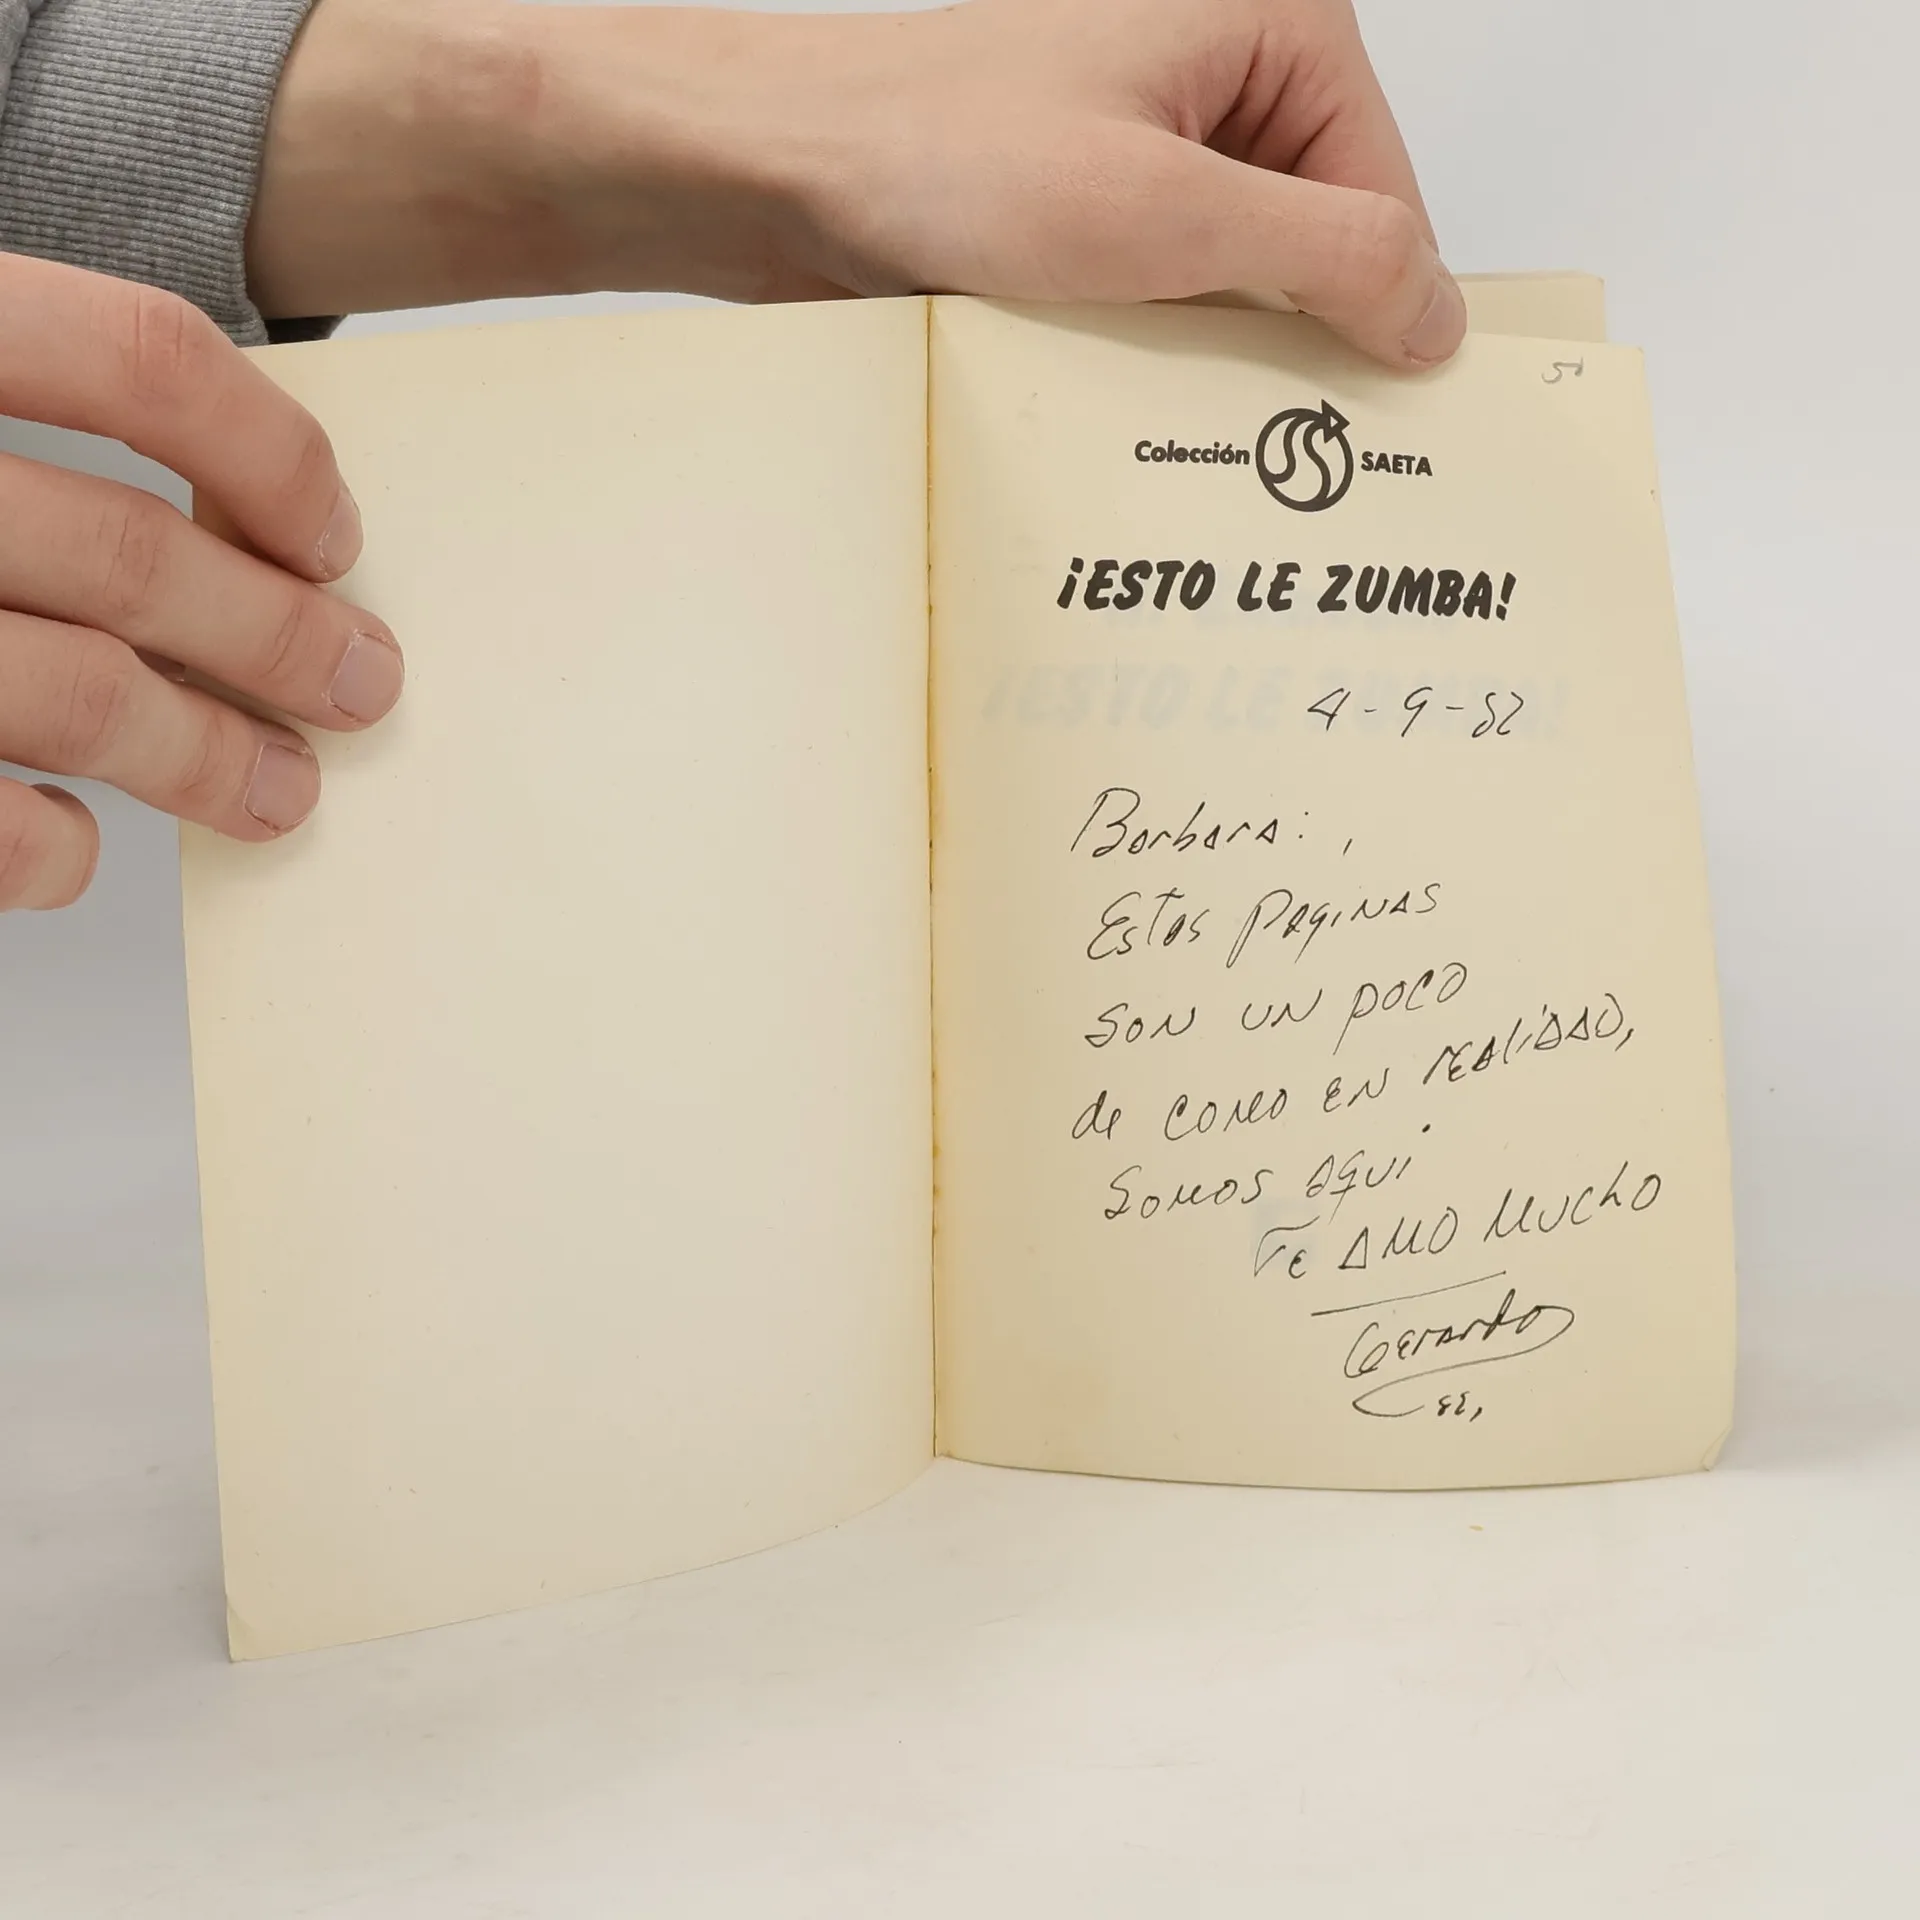 5
Colección SAETA
¡ESTO LE ZUMBA!
4-9-82
Barbara:,
Estas paginas
son un poco
de como en realidad,
somos aqui
Te amo mucho
Gerardo
82,